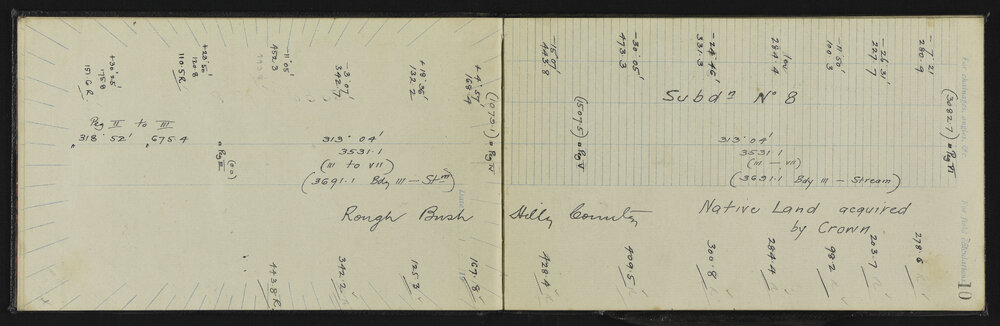 +30° 05'
175 B
151 G R.
+23° 50'
120 8
110.5R.
-11° 05'
452.3
-3° 07'
342.7
+18° 36'
132.2
+4° 57'
168.4
(1079.1) o Peg IV
Peg II to III
318° 52' 675.4
(00)
o Peg III
313° 04'
3531.1
(III to VII)
(3691.1 Bdy III — Stm)
Rough Bush
443.8 R.
342.2 R
125.3
167.8
-15° 07'
443.8
-30° 05'
473.3
-24° 46'
331.3
Lev
284.4
-11° 50'
100.3
-26° 31'
227.7
-7° 21'
280.9
(1507.5) o Peg V
Subdn No 8
(3092.7) o Peg VI
313° 04'
3531.1
(III — VII)
(3691.1 Bdy III — Stream)
Hilly Country
Native Land acquired
by Crown
428.4 R
409.5 R
300.8
284.4 R
98.2
203.7
278.6
10